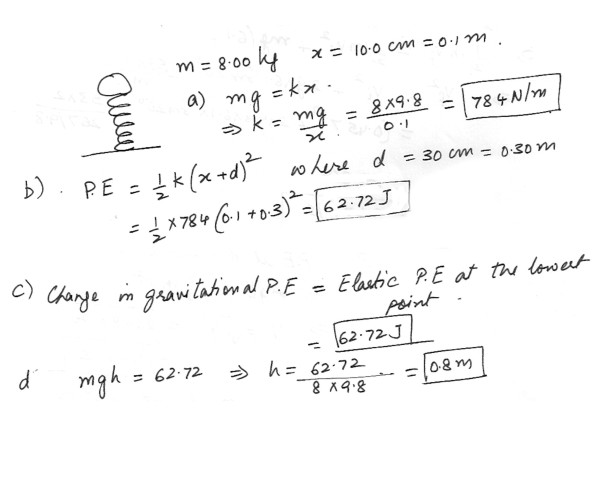 m = 8.00 kg x = 10.0 cm = 0.1 m .
a) mg = kx .
⇒ k = mg/x = 8×9.8/0.1 = 784 N/m
b) . P.E = 1/2 k (x+d)² where d = 30 cm = 0.30 m
= 1/2 × 784 (0.1 + 0.3)² = 62.72 J
c) Change in gravitational P.E = Elastic P.E at the lowest
point .
= 62.72 J
d mgh = 62.72 ⇒ h = 62.72/8×9.8 = 0.8 m